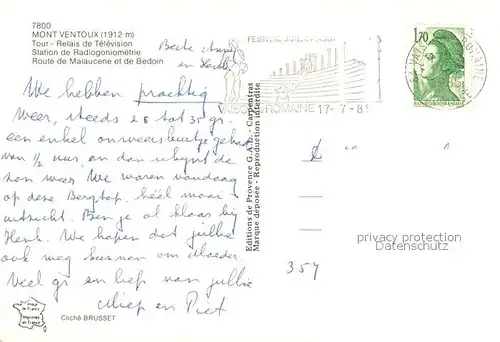 7800
MONT VENTOUX (1912 m)
Tour - Relais de Télévision
Station de Radiogoniométrie
Route de Malaucene et de Bedoin
Beste
en
We hebben prachtig
weer, steeds 28 tot 35 gr.
een enkel onweersbuitje gehad
van 1/2 uur, en dan schijnt de
zon weer. We waren vandaag
op deze Bergtop, héél mooi
uitzicht. Ben je al klaar bij
Henk. We hopen dat jullie
ook weg kunnen om Moeder
Veel gr en liefs van jullie
Miep en Piet
Cliché BRUSSET
Image
de France
Imprimée
en France
Editions de Provence G.A.b. - Carpentras
Marque déposée - Reproduction interdite
FESTIVAL JUILLET AOUT
VAISON ROMAINE 17-7-8
1,70
357
privacy protection
Datenschutz